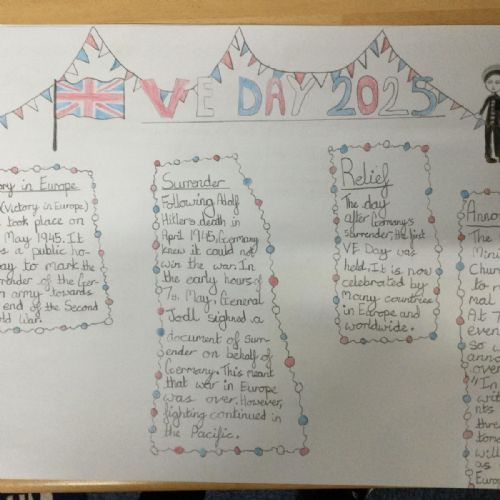 VE DAY 2025
ory in Europe
(Victory in Europe)
took place on
May 1945. It
s a public ho-
ay to mark the
rrender of the Ger-
n army towards
end of the Second
ld War.
Surrender
Following Adolf
Hitlers death in
April 1945, Germany
knew it could not
win the war. In
the early hours of
7th May, General
Jodl sighned a
document of surr-
ender on behalf of
Germany. This meant
that war in Europe
was over. However,
fighting continued in
the Pacific.
Relief
The day
after Germany's
surrender, the first
VE Day was
held. It is now
celebrated by
many countries
in Europe and
worldwide.
Anno
The
Mini
Chur
to r
mal
At 7
even
so w
anno
over
"In
writ
nts
thre
tomo
will
as
Europ